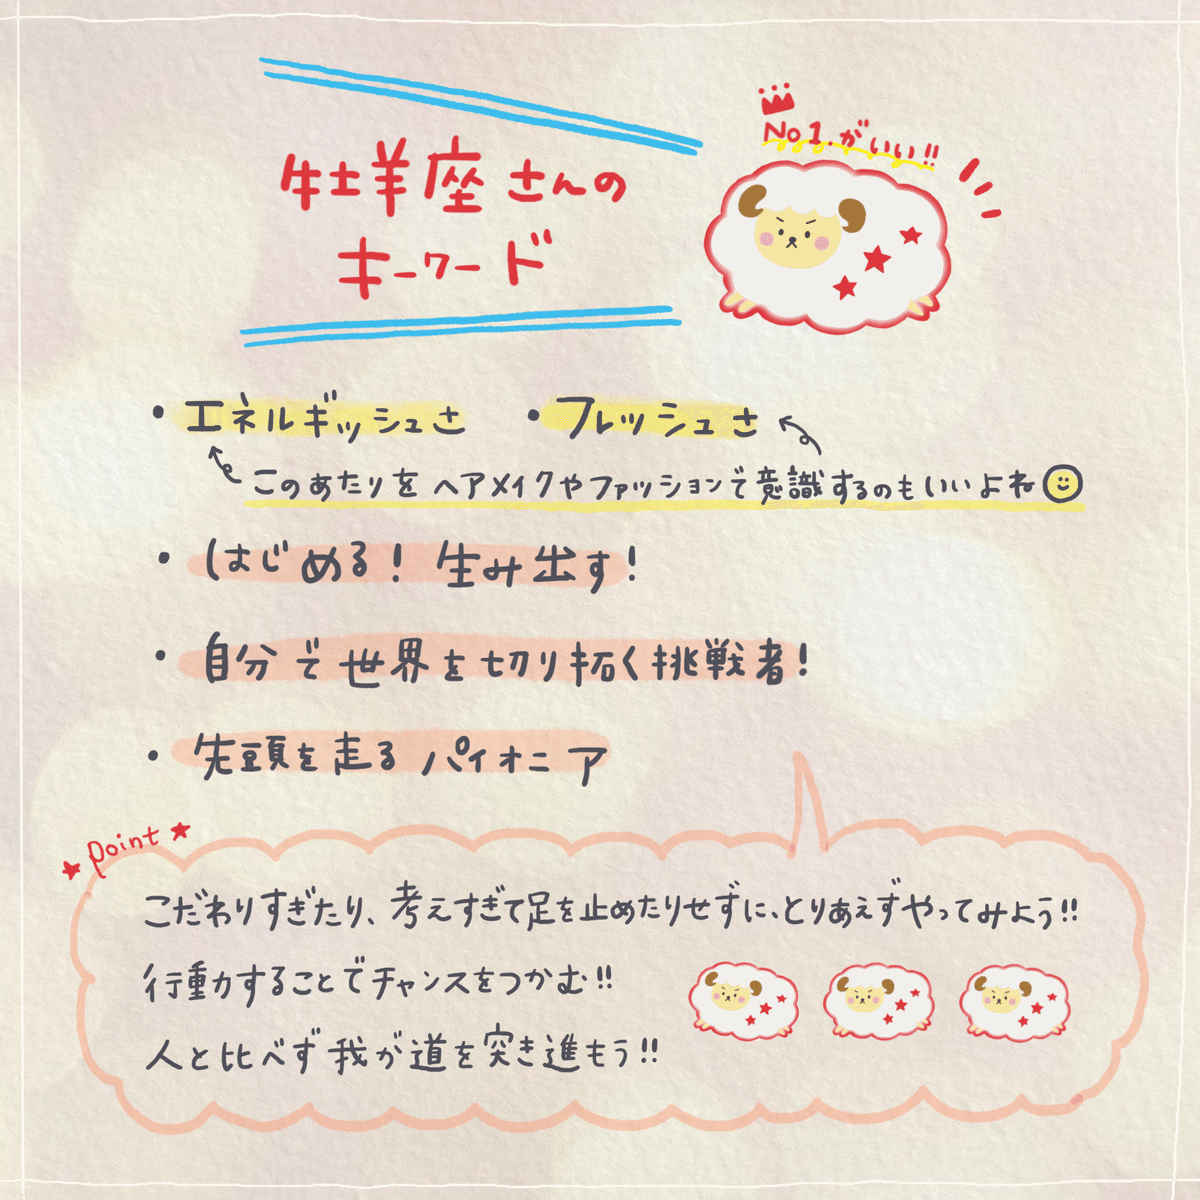 No1.がいい!!
牡羊座さんの
キーワード
・エネルギッシュさ ・フレッシュさ
このあたりをヘアメイクやファッションで意識するのもいいよね
・はじめる! 生み出す!
・自分で世界を切り拓く挑戦者!
・先頭を走るパイオニア
★point★
こだわりすぎたり、考えすぎて足を止めたりせずに、とりあえずやってみよう!!
行動することでチャンスをつかむ!!
人と比べず我が道を突き進もう!!